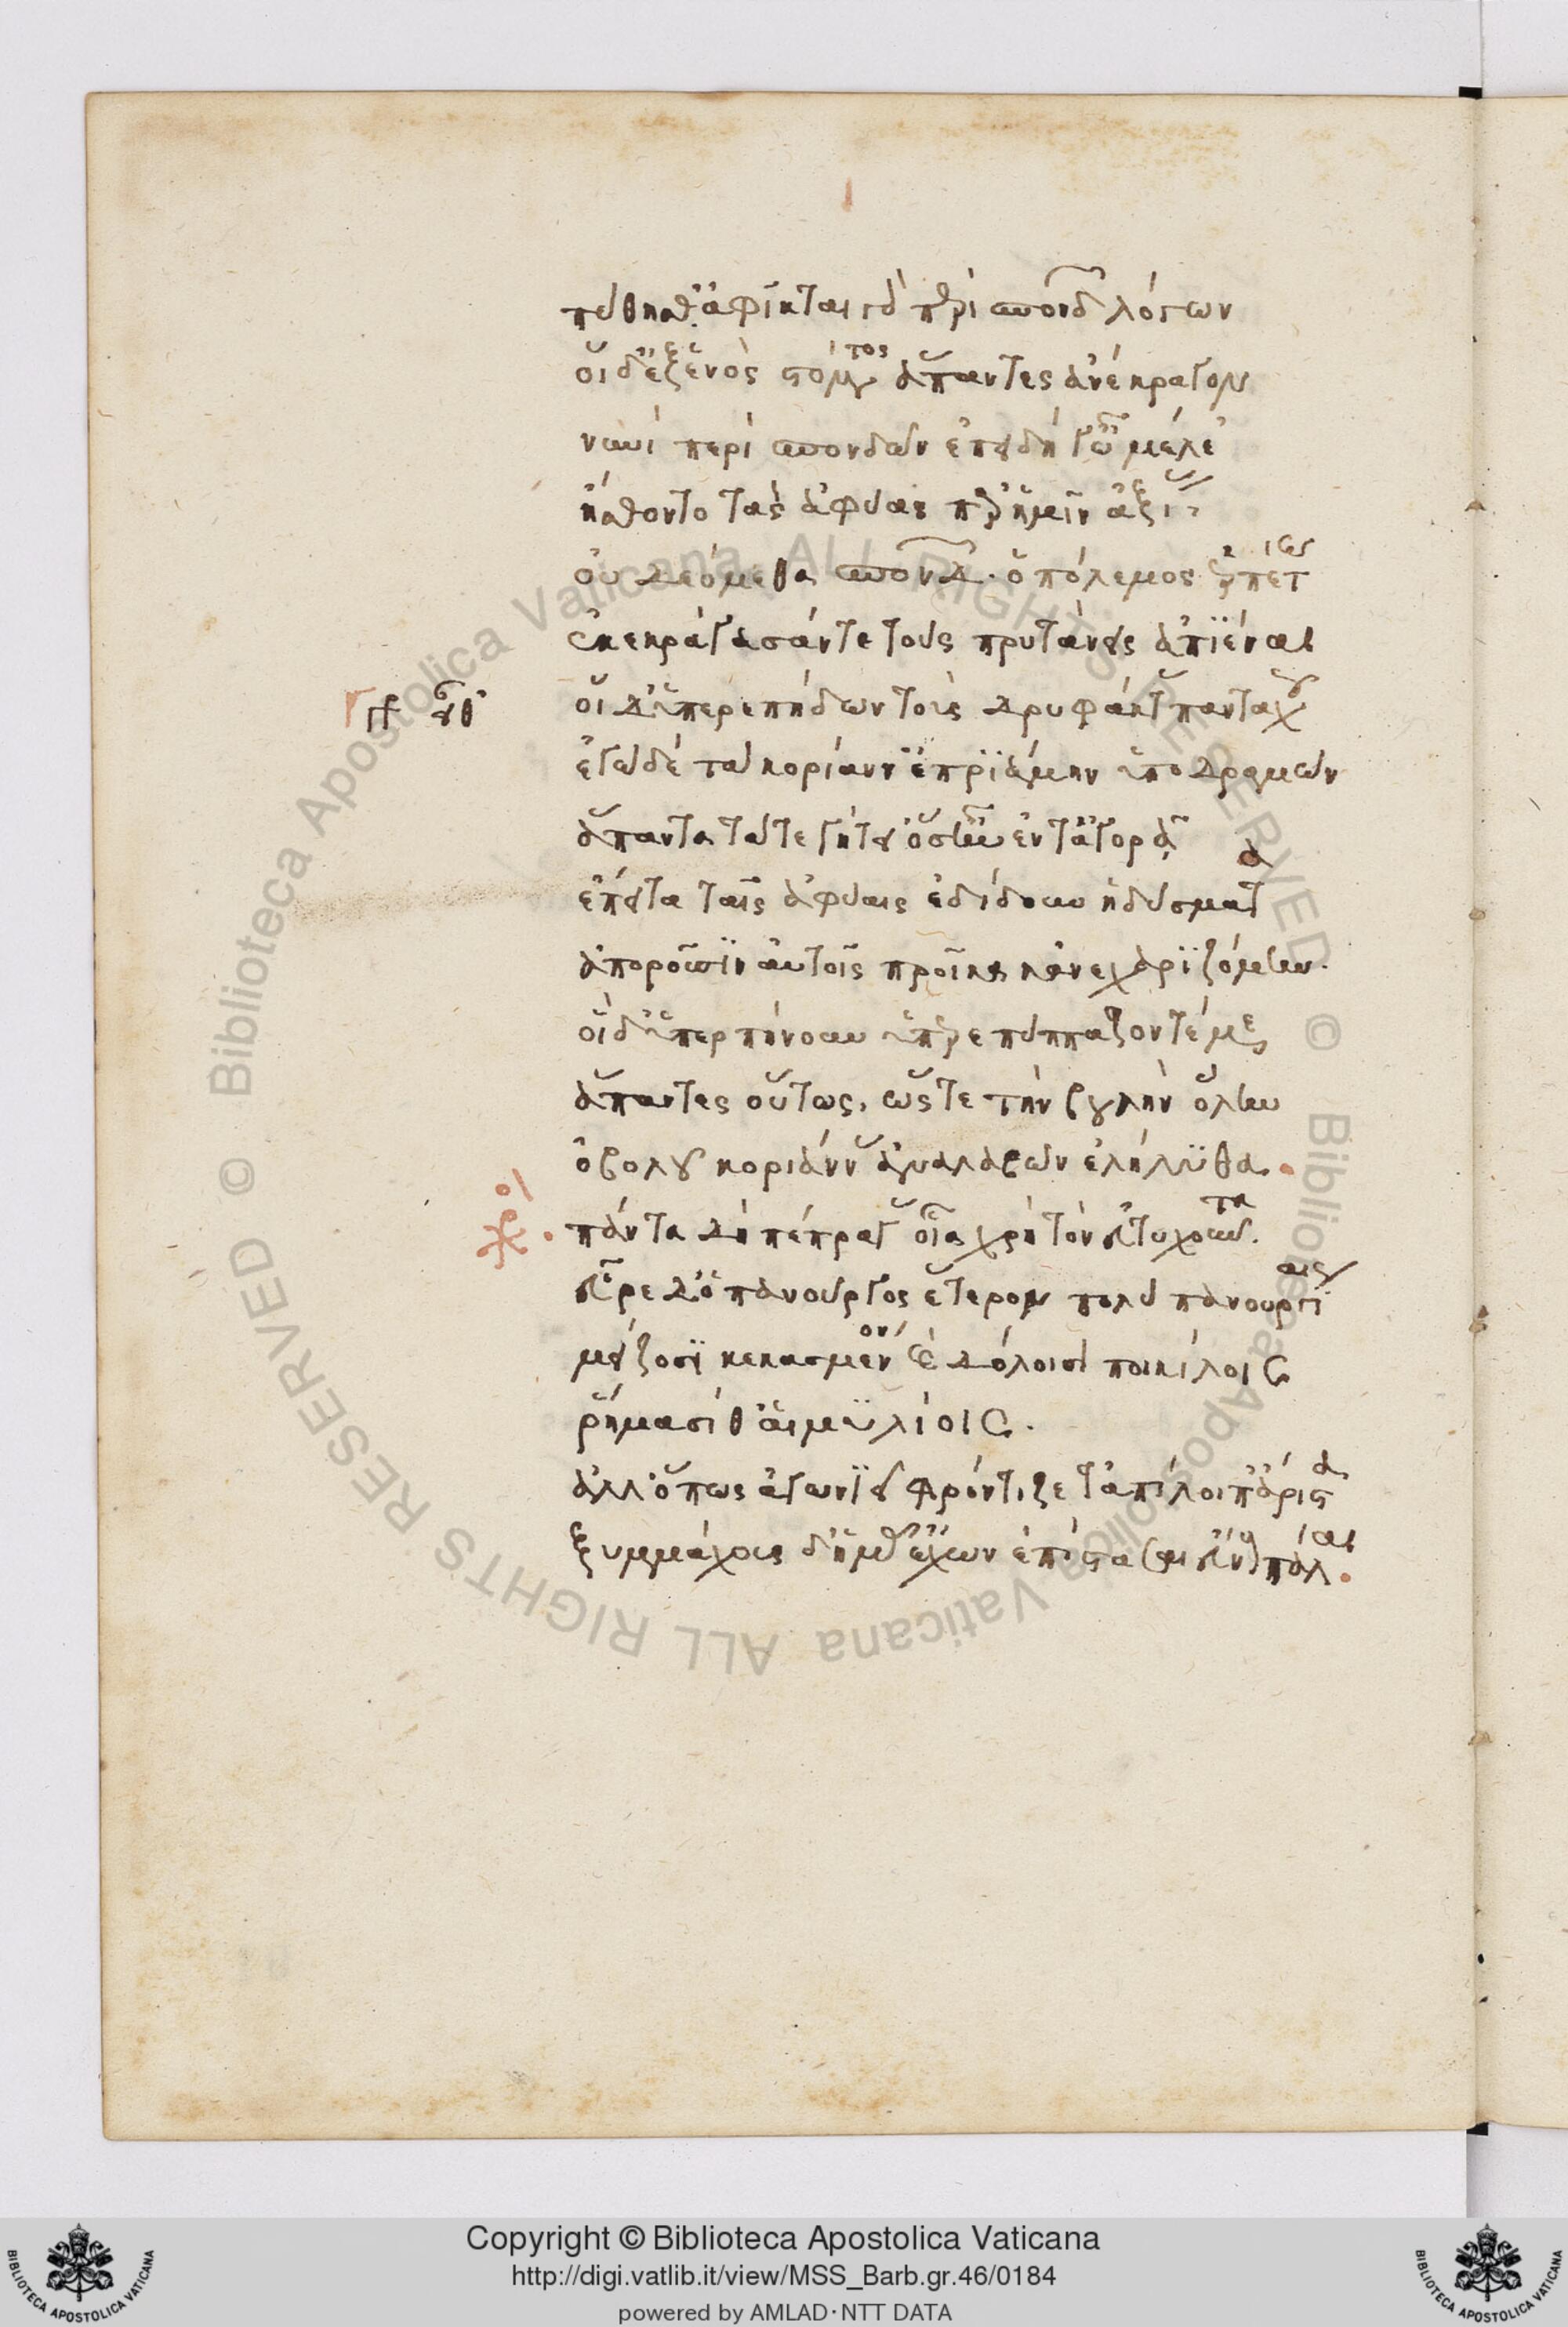 πύθησθ' ἀφῖκται γὰρ περὶ σπονδῶν λόγων
οἱ δ' ἐξ ἑνὸς στόματος ἅπαντες ἀνέκραγον
νυνὶ περὶ σπονδῶν ἐπειδή γ' ὦ μέλε
ᾔσθοντο τὰς ἀφύας παρ' ἡμῖν ἀξίους
οὐ δεόμεθα σπονδῶν. ὁ πόλεμος ἑρπέτω
ἐκεκράγεσάν τε τοὺς πρυτάνεις ἀπϊέναι
οἱ δ' ὑπερεπήδων τοὺς δρυφάκτους πανταχοῦ
ἐγὼ δὲ τὰ κορίανν' ἐπρϊάμην ὑποδραμὼν
ἅπαντα τά τε γήτει' ὅσ' ἦν ἐν τἀγορᾷ
ἔπειτα ταῖς ἀφύαις ἐδίδουν ἡδύσματα
ἀποροῦσϊν αὐτοῖς προῖκα κἀνεχαρϊζόμην.
οἱ δ' ὑπερπήνουν ὑπερεπύππαζόν τέ με
ἅπαντες οὕτως, ὥστε τὴν βουλὴν ὅλην
ὀβολοῦ κοριάννοις ἀναλαβὼν ἐλήλϋθα.
πάντα δὴ πέπραγας οἷα χρὴ τὸν εὐτυχοῦντα.
εὗρε δ' ὁ πανοῦργος ἕτερον πολὺ πανουργίαις
μείζοσϊ κεκασμένον καὶ δόλοισι ποικίλοις
ῥήμασί θ' αἱμϋλίοις.
ἀλλ' ὅπως ἀγωνϊεῖ φρόντιζε τἀπίλοιπ' ἄριστα
ξυμμάχους δ' ἡμᾶς ἔχων ἐπίστασαι εὔνους πάλαι.